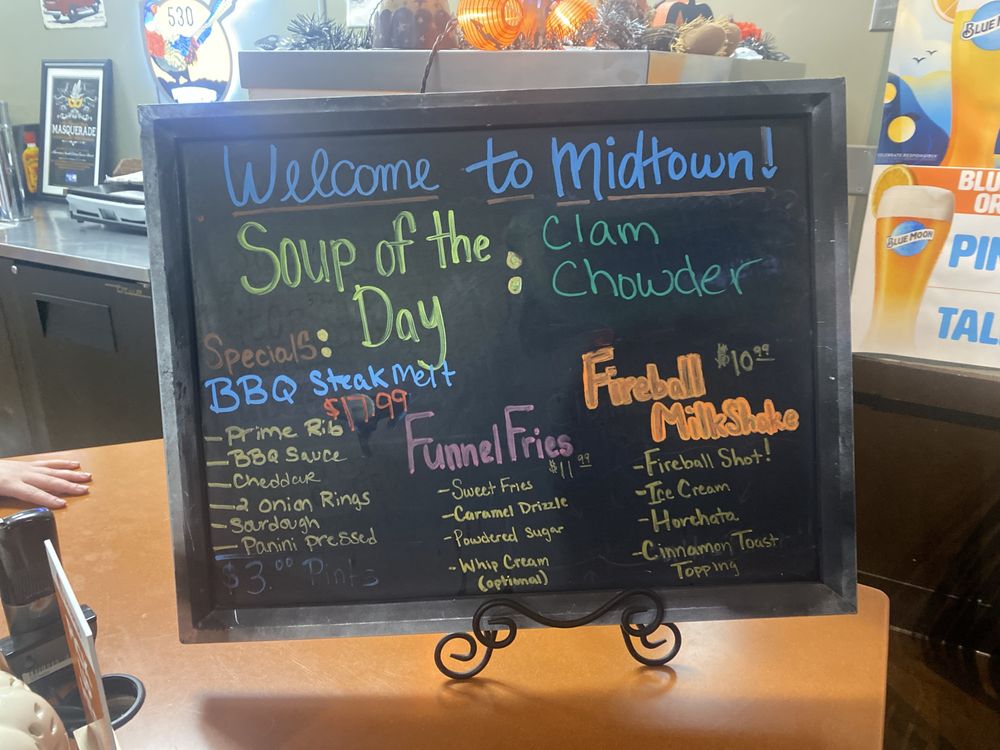 530
MASQUERADE
Welcome to Midtown!
Soup of the Day :
Clam
Chowder
Specials:
BBQ Steak Melt
$17.99
- Prime Rib
- BBQ Sauce
- Cheddar
- 2 Onion Rings
- Sourdough
- Panini Pressed
$3.00 Pints
Funnel Fries
$11.99
- Sweet Fries
- Caramel Drizzle
- Powdered Sugar
- Whip Cream
(optional)
Fireball $10.99
MilkShake
- Fireball Shot!
- Ice Cream
- Horchata
- Cinnamon Toast
Topping
BLUE M
CELEBRATE RESPONSIBLY
BLU
OR
BLUE MOON
PIN
TAL